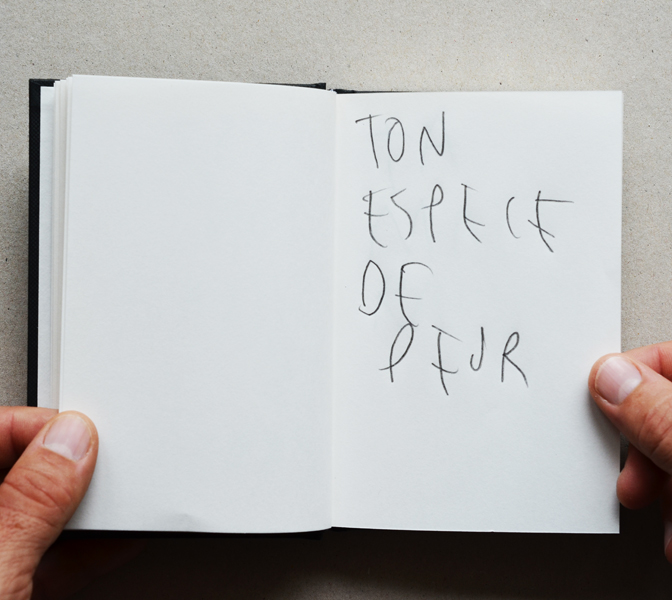 TON
ESPECE
DE
PEUR